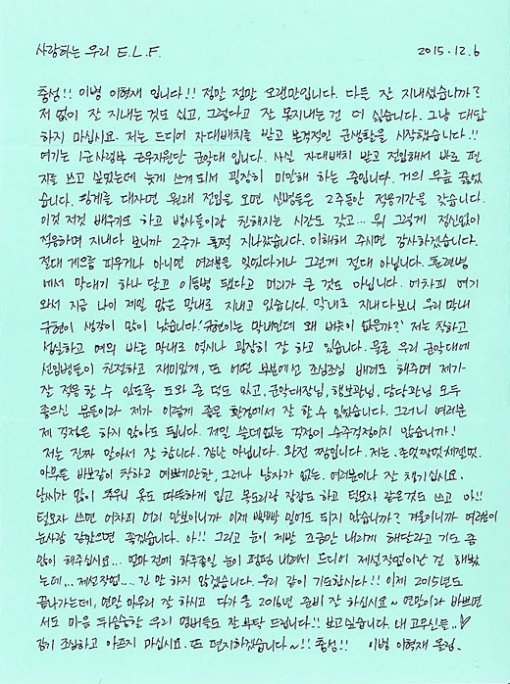 사랑하는 우리 E.L.F. 2015.12.6
충성!! 이병 이혁재 입니다!! 정말 정말 오랜만입니다. 다들 잘 지내셨습니까?
저 없이 잘 지내는 것도 싫고, 그렇다고 잘 못지내는 건 더 싫습니다. 그냥 대답
하지 마십시오. 저는 드디어 자대배치를 받고 본격적인 군생활을 시작했습니다.!!
여기는 1군사령부 근무지원단 군악대 입니다. 사실 자대배치 받고 전입해서 바로 편
지를 쓰고 싶었는데 늦게 쓰게 되서 굉장히 미안해 하는 중입니다. 거의 무릎 꿇었
습니다. 핑계를 대자면 원래 전입을 오면 신병들은 2주동안 적응기간을 갖습니다.
이것 저것 배우기도 하고 병사들이랑 친해지는 시간도 갖고... 뭐 그렇게 정신없이
적응하며 지내다 보니까 2주가 훌쩍 지나갔습니다. 이해해 주시면 감사하겠습니다.
절대 게으름 피우거나 아니면 여러분을 잊었다거나 그런게 절대 아닙니다. 훈련병
에서 막대기 하나 달고 이등병 됐다고 머리가 큰 것도 아닙니다. 어차피 여기
와서 지금 나이 제일 많은 막내로 지내고 있습니다. 막내로 지내다보니 우리 막내
규현이 생각이 많이 났습니다! 규현이는 막내인데 왜 버릇이 없을까? 저는 착하고
성실하고 예의 바른 막내로 역시나 굉장히 잘 하고 있습니다. 물론 우리 군악대에
선임병들이 친절하고 재미있게, 또 어떤 부분에선 조심조심 배려도 해주며 제가
잘 적응할 수 있도록 도와 준 덕도 있고, 군악대장님, 행보관님, 담당관님 모두
좋으신 분들이라 제가 이렇게 좋은 환경에서 잘 할 수 있었습니다. 그러니 여러분
제 걱정은 하지 않아도 됩니다. 제일 쓸데없는 걱정이 슈주걱정이지 않습니까!
저는 진짜 알아서 잘 합니다. 겁나 아닙니다. 완전 짱입니다. 저는.
아무튼 바보같이 착하고 예쁘기만한, 그러나 남자가 없는. 여러분이나 잘 챙기십시오.
날씨가 많이 추우니 옷도 따뜻하게 입고 목도리랑 장갑도 하고 털모자 같은것도 쓰고 아!!
털모자 쓰면 어차피 머리 안보이니까 이제 빡빡 밀어도 되지 않습니까? 겨울이니까 여러분이
눈사람 같았으면 좋겠습니다. 아!! 그리고 눈이 제발 조금만 내리게 해달라고 기도 좀
많이 해주십시오... 얼마 전에 하루종일 눈이 펑펑 내려서 드디어 제설작업이란 걸 해봤
는데... 제설작업.... 긴 말 하지 않겠습니다. 우리 같이 기도합시다!! 이제 2015년도
끝나가는데, 연말 마무리 잘 하시고 다가올 2016년 준비 잘 하십시오~ 연말이라 바쁘면
서도 마음 뒤숭숭한 우리 멤버들도 잘 부탁 드립니다!! 보고싶습니다. 내 고무신들..♡
감기 조심하고 아프지 마십시오. 또 편지하겠습니다~!! 충성!! 이병 이혁재 올림.